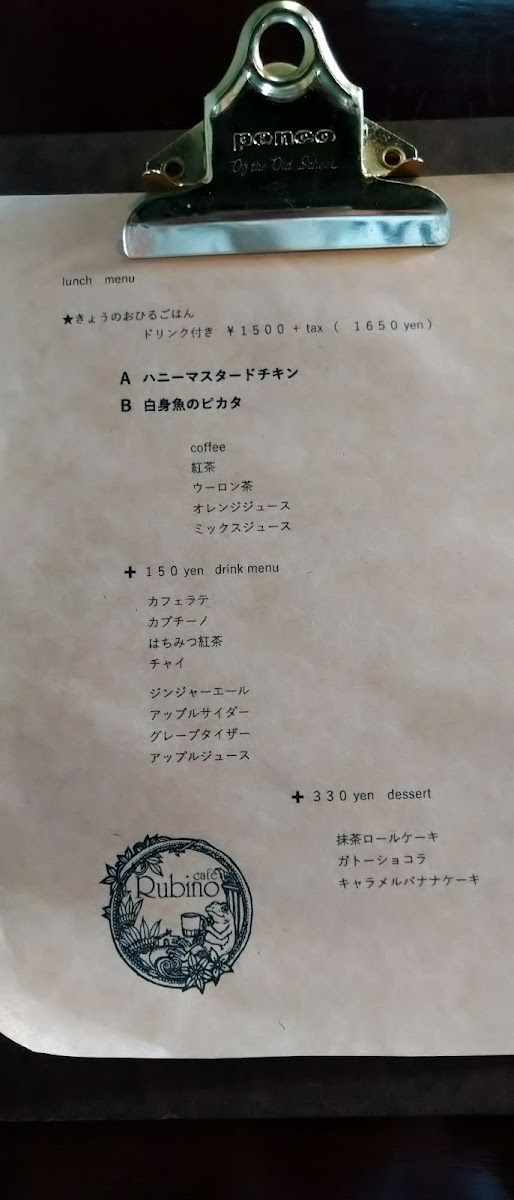 penco
Of the Old School
lunch menu
★きょうのおひるごはん
ドリンク付き ￥１５００ + tax ( １６５０ yen )
A ハニーマスタードチキン
B 白身魚のピカタ
coffee
紅茶
ウーロン茶
オレンジジュース
ミックスジュース
+ １５０ yen drink menu
カフェラテ
カプチーノ
はちみつ紅茶
チャイ
ジンジャーエール
アップルサイダー
グレープタイザー
アップルジュース
+ ３３０ yen dessert
抹茶ロールケーキ
ガトーショコラ
キャラメルバナナケーキ
café
Rubino